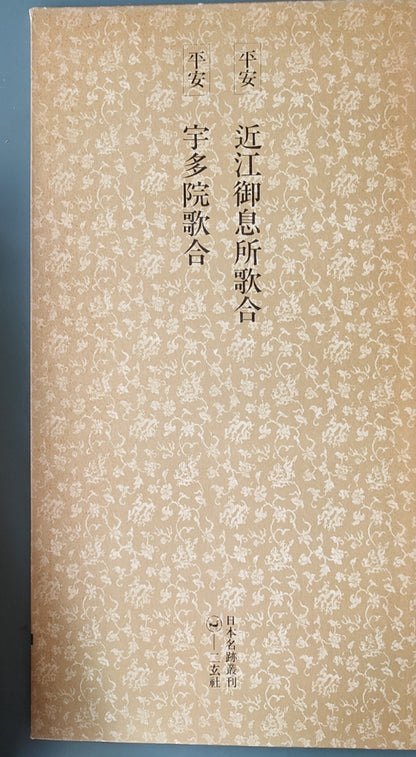 平安 近江御息所歌合
平安 宇多院歌合
日本名跡叢刊
二玄社